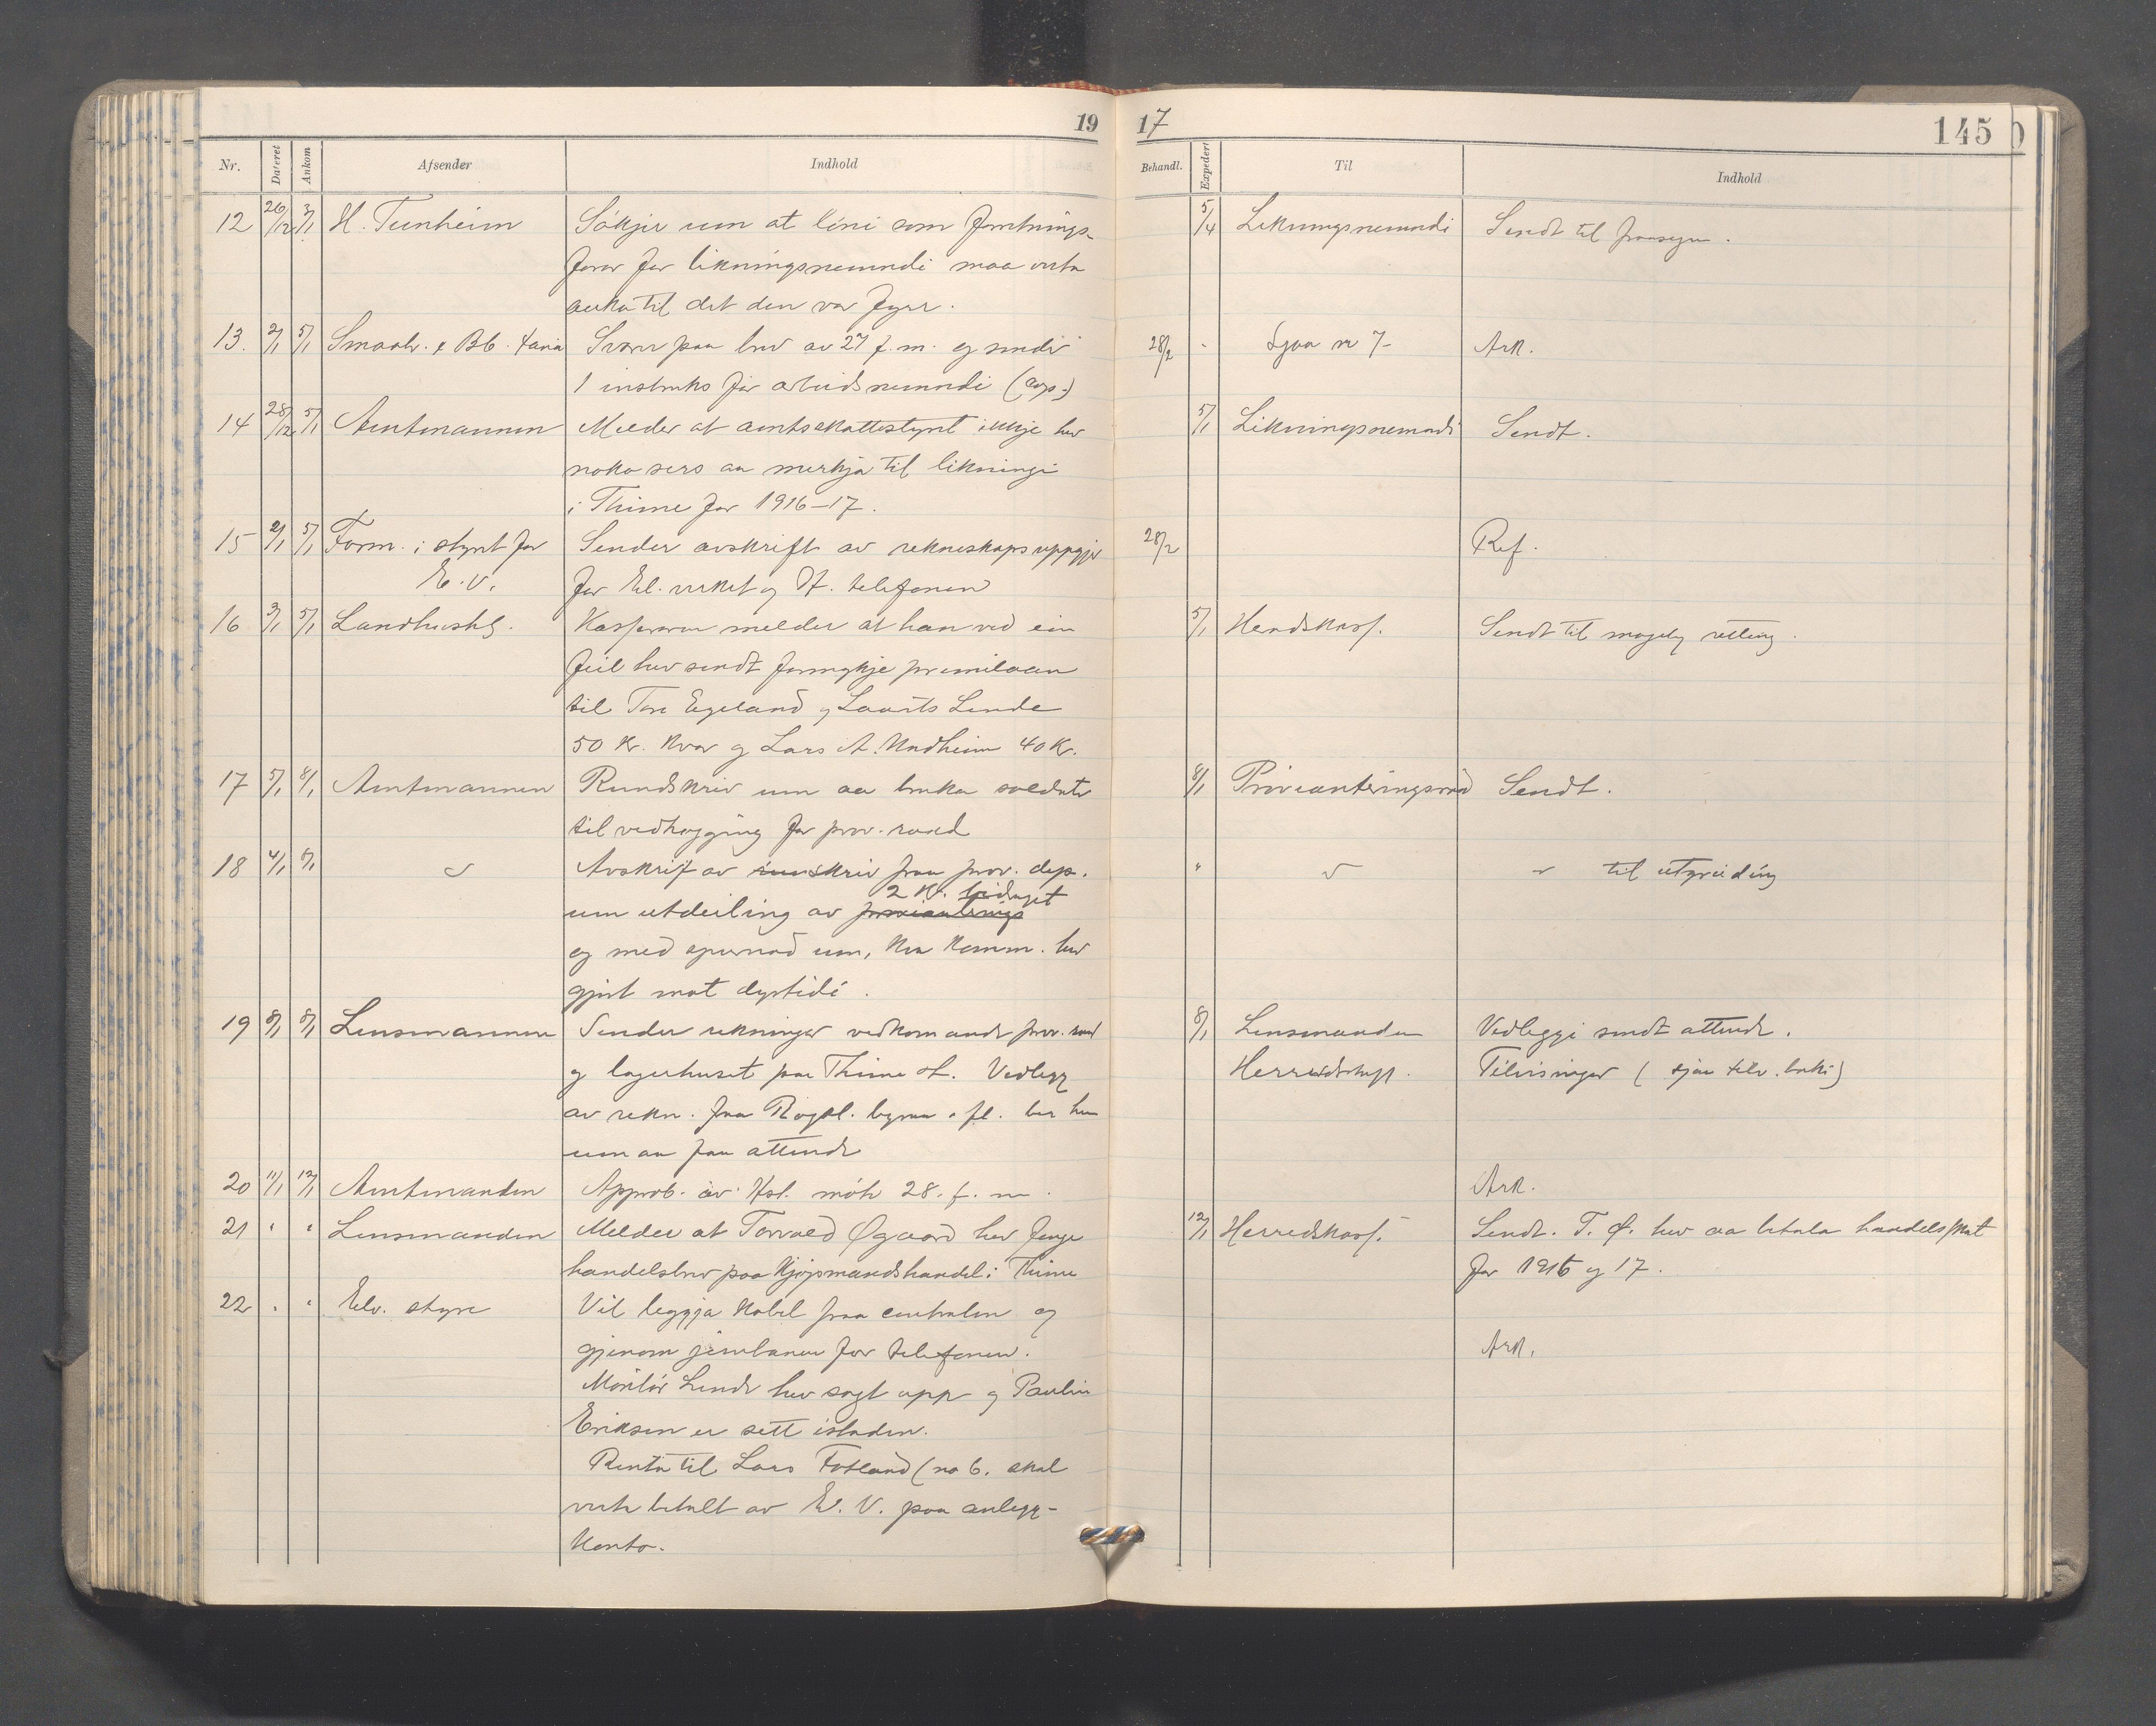 19
17
145
Nr.
Dateret
Ankom
Afsender
Indhold
Behandl.
Expedert
Til
Indhold
12 26/12 3/1 H. Tunheim Sökjer um at löni som forretnings-
förar for likningsnemndi maa verta
auka til det den var fyrr.
5/4 Likningsnemndi Sendt til fraasegn.
13. 2/1 5/1 Smaabr. & Bb. Svarar paa brev av 27 f. m. og sender
1 instruks for arbeidsnemndi
28/2 - Sjaa nr 7- Ark.
14 28/12 5/1 Amtmannen Melder at amtsskattestyret ikkje hev
noko sers aa merkja til likningi
i Thime for 1916-17.
5/1 Likningsnemndi Sendt.
15 2/1 5/1 Form. i styret for Sender avskrift av rekneskapsuppgjer
E. V. for El. verket og tf. telefonen
28/2 Ref.
16 3/1 5/1 Landhushg. Kasseraren melder at han ved ein
feil hev sendt formykje premilaan
til Tore Egeland og Laurits Lende
50 kr. kvar og Lars A. Undheim 40 Kr.
5/1 Heradskass. Sendt til mogeleg retting.
17 5/1 8/1 Amtmannen Rundskriv um aa bruka soldatar
til vedhogging for prov. raad
8/1 Provianteringsraad Sendt.
18 4/1 8/1 " Avskrift av skriv fraa prov. dep.
2 K. bidraget
um utdeiling av provianterings
og med spurnad um, kva komm. hev
gjort mot dyrtidi.
" " " til utgreiding
19 8/1 8/1 Lensmannen Sender rekningar vedkomande prov. raad
og lagerhuset paa Thime st. Vedlegg
av rekn. fraa Rogal. o. fl. ber han
um aa faa attende
8/1 Lensmanden Vedleggi sendt attende.
Herredskass. Tilvisingar ( sjaa tilv. boki)
20 11/1 12/1 Amtmanden Approb. av Hst. möte 28. f. m.
Ark.
21 " " Lensmanden Melder at Torvald Øgaard hev fenge
handelsbrev paa Kjøpmandshandel i Thime
12/1 Herredskass. Sendt. T. Ø. hev aa betala handelsskat
for 1916 og 17.
22 " " Elv. styre Vil leggja kabel fraa centralen og
gjenom jernbanen for telefonen.
Ark.
Montör Lende hev sagt upp og Paulin
Eriksen er sett istaden.
Renta til Lars Fotland (no 6. skal
verta betalt av E. V. paa anlegg-
konto.